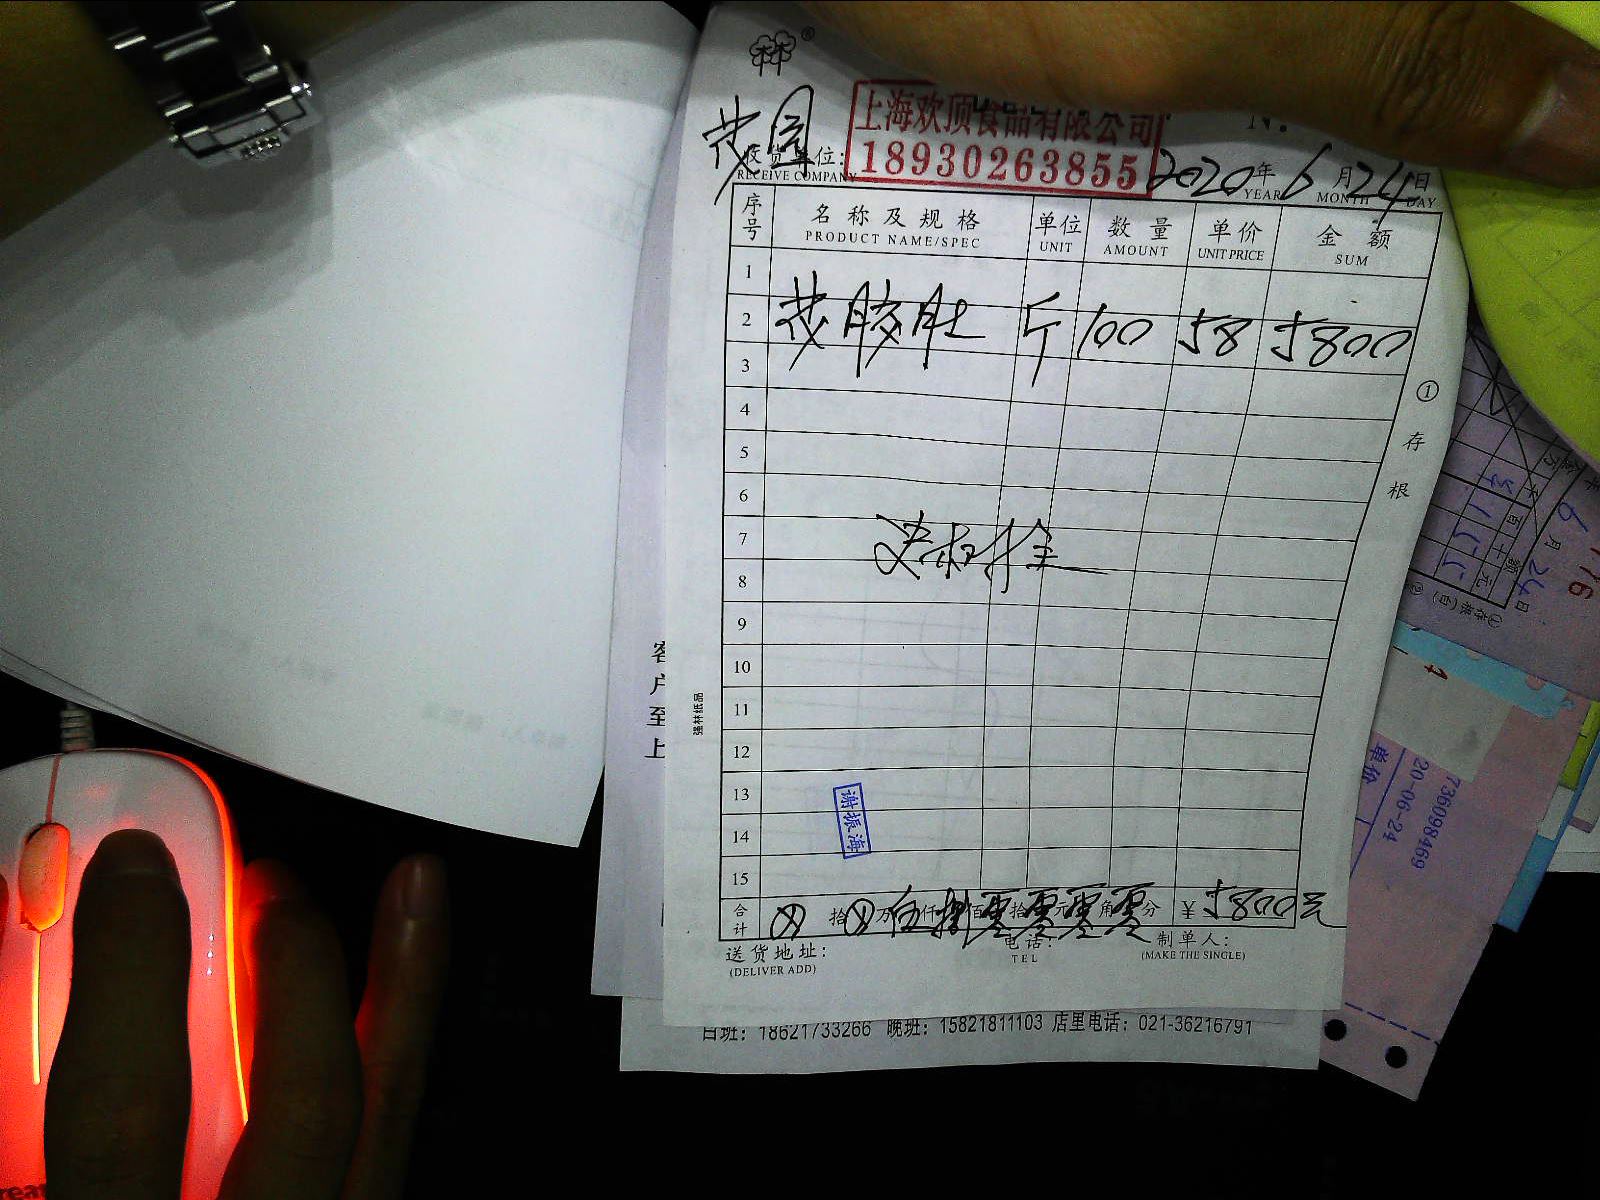 林®
茂园
上海欢顶食品有限公司
18930263855
收货单位:
RECEIVE COMPANY
2020年6月24日
YEAR MONTH DAY
序号 名称及规格 单位 数量 单价 金额
PRODUCT NAME/SPEC UNIT AMOUNT UNIT PRICE SUM
1
2 茂胶肚 斤 100 58 5800
3
4
5
6
7
8
9
10
11
12
13
14
15
谢振海
合计 拾 万 伍仟捌佰零拾零元零角零分 ¥5800元
送货地址: 电话: 制单人:
(DELIVER ADD) TEL (MAKE THE SINGLE)
①存根
强林纸品
客户至上
白班: 18621733266 晚班: 15821811103 店里电话: 021-36216791
6月24日
单价
20-06-24
736098469